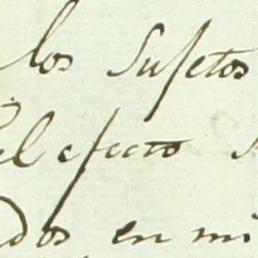 los Sujetos
el efecto
dos en mi